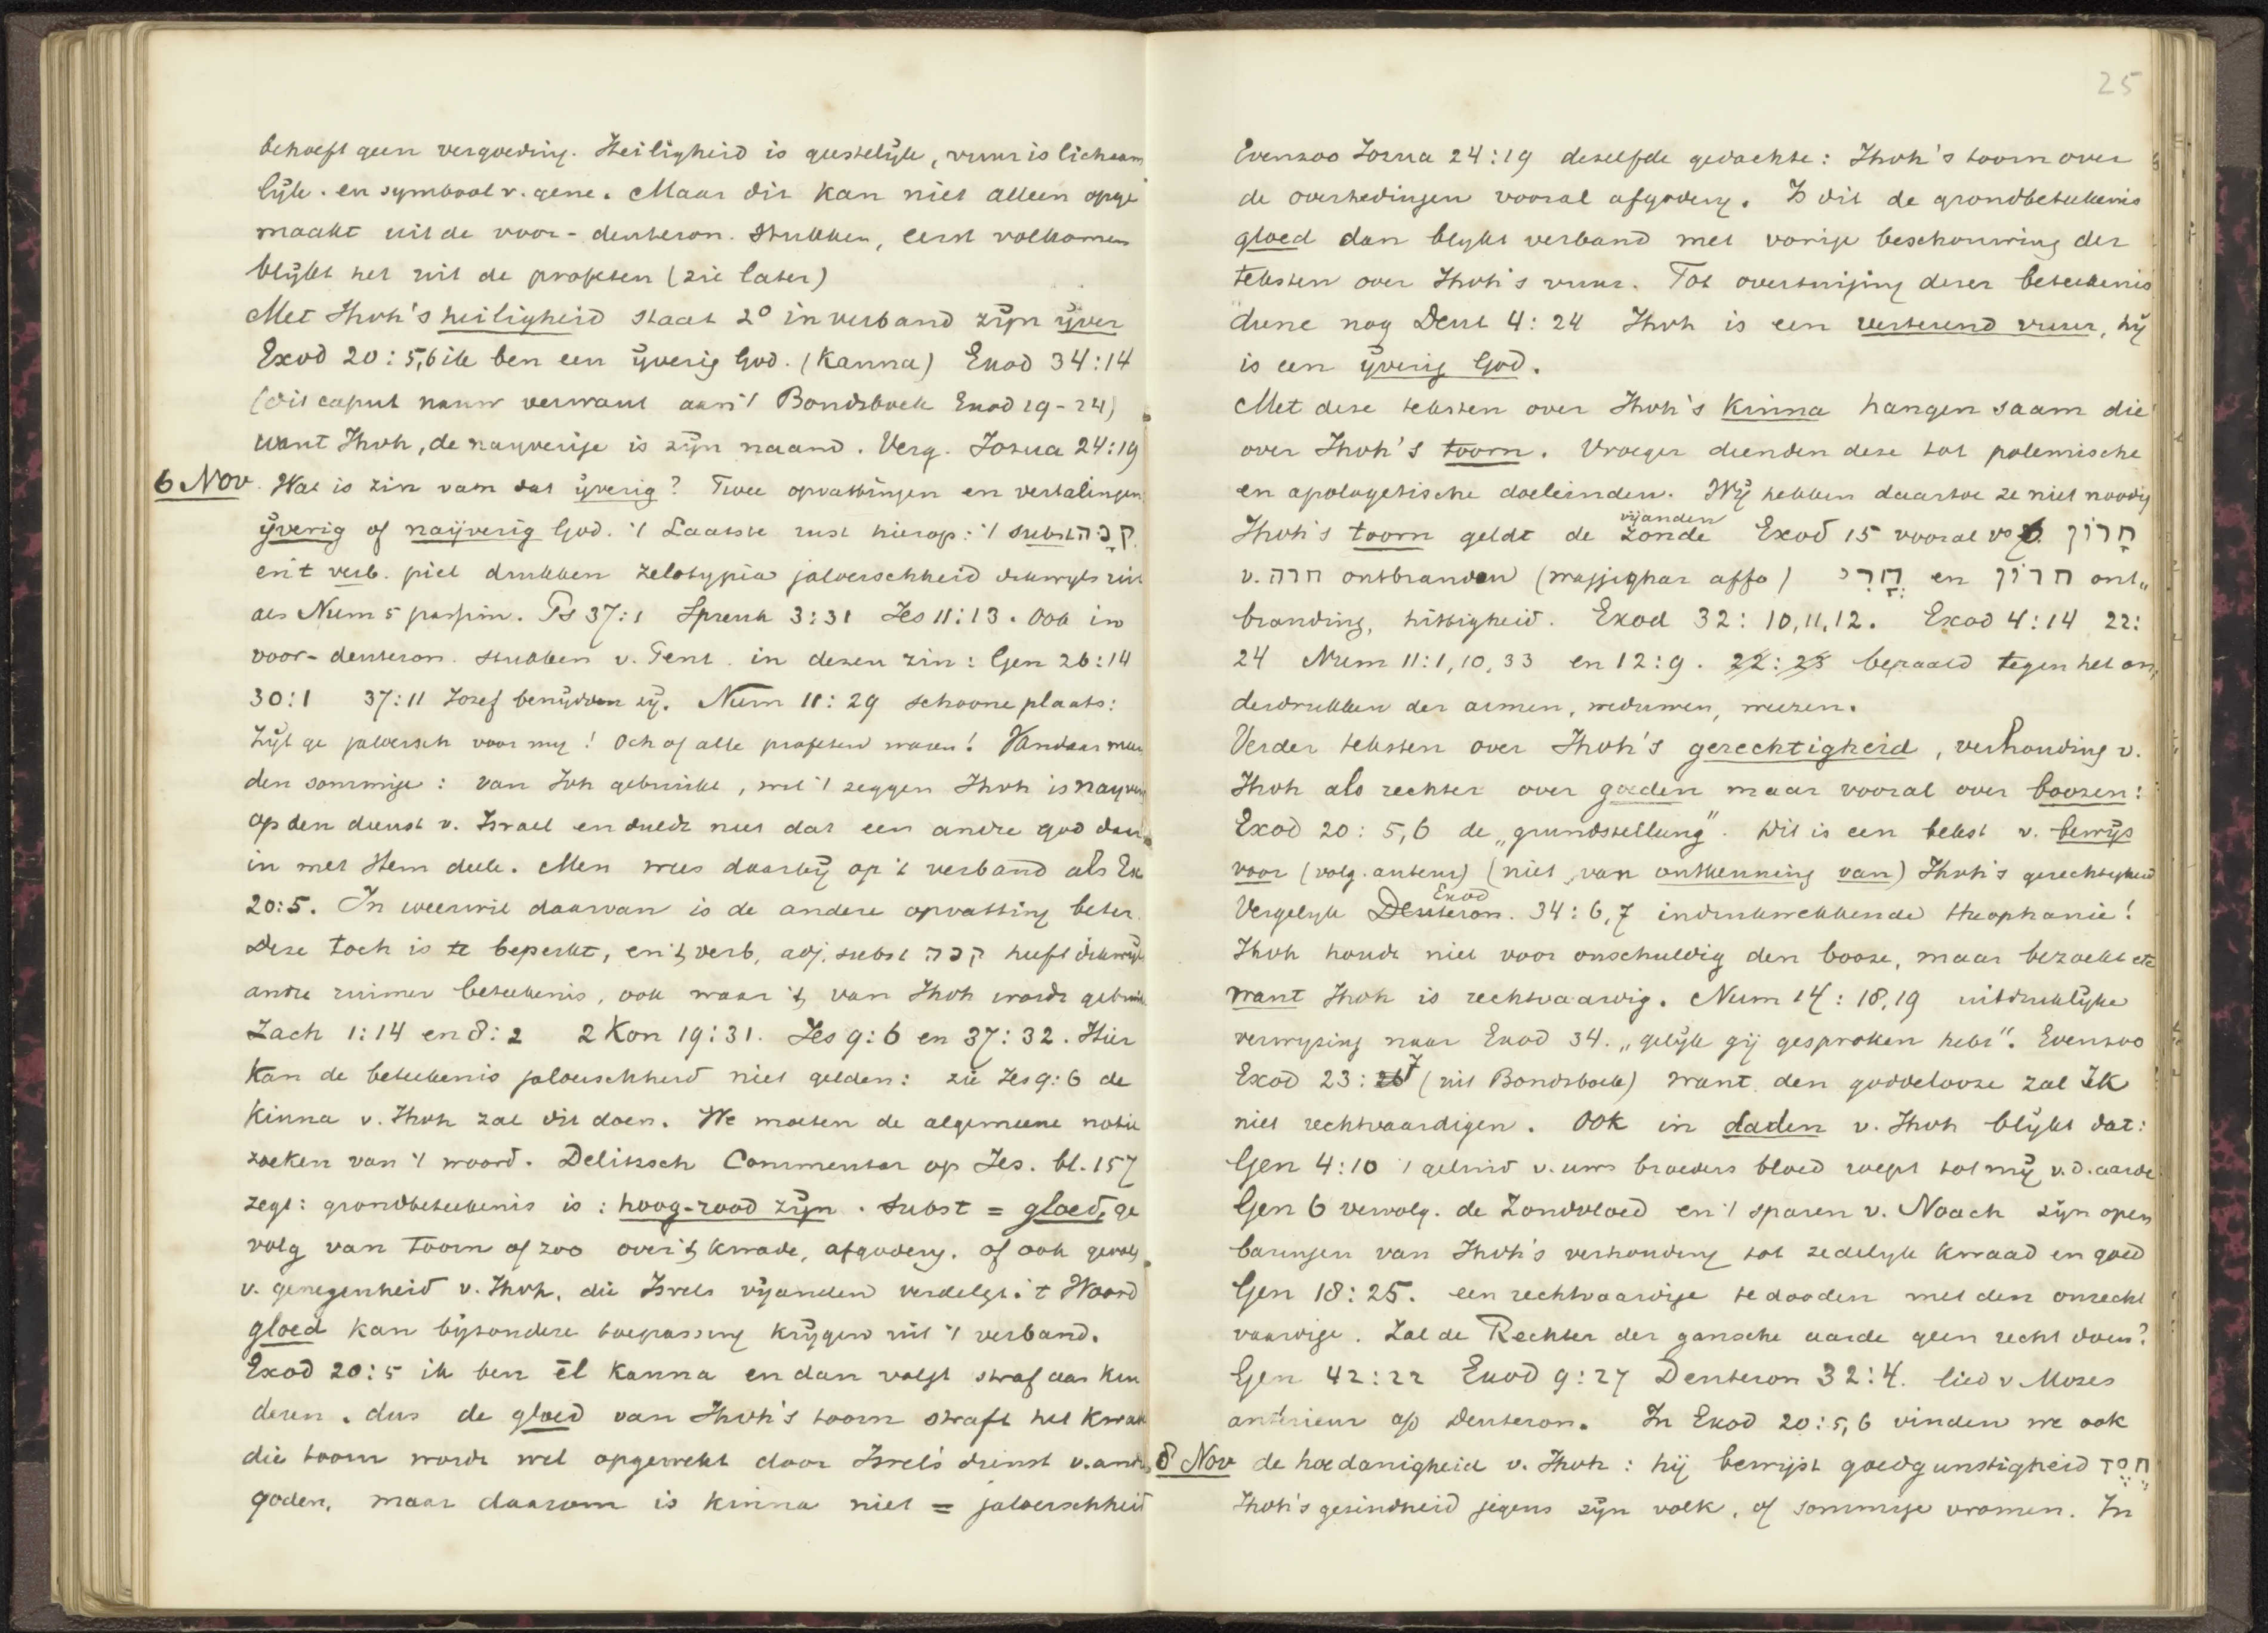 behoeft geen vergoeding. Heiligheid is geestelijk, vuur is lichaam
lijk. en symbool v. gene. Maar dit kan niet alleen opge
maakt uit de voor-deuteron. stukken, eerst volkomen
blijkt het uit de profeten (zie later)
Met Jhvh's heiligheid staat 2º in verband zijn ijver
Exod 20:5,6 ik ben een ijverig God. (Kanna) Exod 34:14
(dit caput nauw verwant aan 't Bondsboek Exod 19-24)
want Jhvh, de nayverige is zijn naam. Verg. Jozua 24:19
6 Nov. Wat is zin van dat ijverig? Twee opvattingen en vertalingen
ijverig of naijverig God. 't Laatste rust hierop: 't subst קנה
en 't verb. piel drukken zelotypia jaloerschheid dikwyls uit
als Num 5 passim. Ps 37:1 Spreuk 3:31 Jes 11:13. Ook in
voor-deuteron. stukken v. Pent. in dezen zin: Gen 26:14
30:1 37:11 Jozef benijdden zij. Num 11:29 schoone plaats:
Zijt ge jaloersch voor my! Och of alle profeten waren! Vandaar meen
den sommige: van Jvh gebruikt, wil 't zeggen Jhvh is nayverig
op den dienst v. Israel en duldt niet dat een andre god daar
in met Hem deele. Men wees daarbij op 't verband als Ex
20:5. In weerwil daarvan is de andere opvatting beter.
Deze toch is te beperkt, en 't verb, adj. subst קנה heeft dikwijls
andre ruimer beteekenis, ook waar 't van Jhvh wordt gebruikt
Zach 1:14 en 8:2 2 Kon 19:31. Jes 9:6 en 37:32. Hier
kan de beteekenis jaloerschheid niet gelden: zie Jes 9:6 de
Kinna v. Jhvh zal dit doen. We moeten de algemeene notie
zoeken van 't woord. Delitzsch Commentar op Jes. bl. 157
zegt: grondbeteekenis is: hoog-rood zijn. Subst = gloed, ge
volg van toorn of zoo over 't kwade, afgodery. of ook gevolg
v. genegenheid v. Jhvh, die Isrels vijanden verdelgt. 't Woord
gloed kan bijzondere toepassing krijgen uit 't verband.
Exod 20:5 ik ben ēl Kanna en dan volgt straf aan kin
deren. dus de gloed van Jhvh's toorn straft het kwaad
die toorn wordt wel opgewekt door Isrel's dienst v. andre
goden, maar daarom is kinna niet = jaloerschheid
25
Evenzoo Jozua 24:19 dezelfde gedachte: Jhvh's toorn over
de overtredingen vooral afgodery. Is dit de grondbeteekenis
gloed dan blykt verband met vorige beschouwing der
teksten over Jhvh's vuur. Tot overtuiging dezer beteekenis
diene nog Deut 4:24 Jhvh is een verterend vuur, hij
is een ijverig God.
Met deze teksten over Jhvh's Kinna hangen saam die
over Jhvh's toorn. Vroeger dienden deze tot polemische
en apologetische doeleinden. Wij hebben daartoe ze niet noodig
vijanden
Jhvh's toorn geldt de zonde Exod 15 vooral vs 7. חרון
v. חרה ontbranden (wajjighar affo) חֳרִי en חרון ont„
branding, hittigheid. Exod 32:10,11,12. Exod 4:14 22:
24 Num 11:1,10,33 en 12:9. 22:23 bepaald tegen het on„
derdrukken der armen, weduwen, weezen.
Verder teksten over Jhvh's gerechtigheid, verhouding v.
Jhvh als rechter over goeden maar vooral over boozen:
Exod 20:5,6 de „grundstellung". Dit is een tekst v. bewijs
voor (volg. auteur) (niet van ontkenning van) Jhvh's gerechtigheid
Exod
Vergelyk Deuteron. 34:6,7 indrukwekkende theophanie!
Jhvh houdt niet voor onschuldig den booze, maar bezoekt etc
want Jhvh is rechtvaardig. Num 14:18,19 uitdruklijke
verwyzing naar Exod 34. „gelijk gij gesproken hebt". Evenzoo
Exod 23:7 (uit Bondsboek) want den goddelooze zal Ik
niet rechtvaardigen. Ook in daden v. Jhvh blijkt dat:
Gen 4:10 't geluid v. uws broeders bloed roept tot mij v.d. aarde
Gen 6 vervolg. de Zondvloed en 't sparen v. Noach zijn open
baringen van Jhvh's verhouding tot zedelyk kwaad en goed
Gen 18:25. een rechtvaardige te dooden met den onrecht
vaardige. Zal de Rechter der gansche aarde geen recht doen?
Gen 42:22 Exod 9:27 Deuteron 32:4. lied v Mozes
anterieur op Deuteron. In Exod 20:5,6 vinden we ook
8 Nov de hoedanigheid v. Jhvh: hij bewijst goedgunstigheid חסד
Jhvh's gezindheid jegens zijn volk, of sommige vromen. In